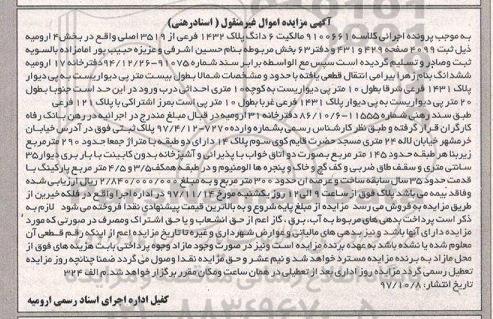 آگهی مزایده اموال غیرمنقول ( اسنادرهنی)
به موجب پرونده اجرائی کلاسه ۹۱۰۰۶۶۱ مالکیت ۶ دانگ پلاک ۱۴۳۲ فرعی از ۳۵۱۹ اصلی واقع در بخش ۴ ارومیه
ذیل ثبت ۴۰۹۹ صفحه ۴۲۹ و ۴۳۱ دفتر ۶۳ بخش مربوطه بنام حسین اشرفی و عزیزه حبیب پور امامزاده بالسویه
ثبت وصادر و تسلیم گردیده است سپس مع الواسطه برابر سند شماره ۹۱۰۷۵-۹۴/۱۲/۲۶ دفترخانه ۱۷ ارومیه
ششدانگ بنام زهرا بیرامی انتقال قطعی یافته با حدود و مشخصات شمالا بطول بیست متر پی دیوار یست به پی دیوار
پلاک ۱۴۳۱ فرعی شرقا بطول ۱۰ متر پی دیواریست به کوچه ۱۰ متری احداثی درب ورود در این حد است جنوبا بطول
۲۰ متر پی دیواریست به پی دیوار پلاک ۱۴۳۱ فرعی غربا بطول ۱۰ متر پی است بمرز اشتراکی با پلاک ۱۲ فرعی
طبق سند رهنی شماره ۱۱۵۵۵-۸۶/۱۰/۶ دفترخانه ۳۱ ارومیه در قبال مبلغ مندرج در اجرائیه در رهن بانک رفاه
کارگران قرار گرفته و طبق نظر کارشناس رسمی بشماره وارده ۷۲۷۰-۹۷/۴/۱۲ پلاک ثبتی فوق در آدرس خیابان
خرمشهر خیابان لاله ۲۴ متری مسجد حضرت قایم کوی سوم پلاک ۱۴ دارای دو طبقه با متراژ جمعا حدود ۲۹۰ مترمربع
زیربنا هر طبقه حدود ۱۴۵ متر مربع بصورت دواتاق خواب با پذیرائی و آشپزخانه بدون کابینت با بار بری دیوار ۳۵
سانتی متری و سقف طاق ضربی و کف گچ و خاک و پنجره ها آلومنیوم و در طبقه همکف ۳/۵ و ۴/۵ متر مربع پارکینگ با
قدمت حدود ۳۵ سال سابقه ساخت و عرصه آن حدود ۳۰۰ متر مربع و به مبلغ ۲/۸۴۰/۰۰۰/۰۰۰ ریال ارزیابی شده
وفاقد بیمه می باشد پلاک فوق از ساعت ۹ الی ۱۲ روز یکشنبه مورخ ۹۷/۱۱/۱۴ در اداره اجرا واقع در فلکه خیرین از
طریق مزایده به فروش می رسد مزایده از مبلغ پایه شروع و به بالاترین قیمت پیشنهادی نقدا فروخته می شود لازم به
ذکر است پرداخت بدهی های مربوط به آب، برق، گاز اعم از حق انشعاب و یا حق اشتراک ومصرف در صورتی که مورد
مزایده دارای آنها باشد ونیز بدهی های مالیاتی و عوارض شهرداری وغیره تا تاریخ مزایده اعم از اینکه رقم قطعی آن
معلوم شده یا نشده باشد به عهده برنده مزایده است ونیز در صورت وجود مازاد وجوه پرداختی بابت هزینه های فوق از
محل مازاد به برنده مزایده مسترد خواهد شد و نیم عشر و حق مزایده نقدا وصول می گردد ضمنا چنانچه روز مزایده
تعطیل رسمی گردد مزایده روز اداری بعد از تعطیلی در همان ساعت ومکان مقرر برگزار خواهد شد. م الف ۳۲۴
تاریخ انتشار: ۹۷/۱۰/۸
کفیل اداره اجرای اسناد رسمی ارومیه